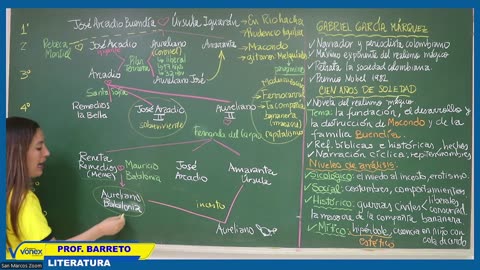 1° José Arcadio Buendía Úrsula Iguarán → En Riohacha
→ Prudencio Aguilar
2 Rebeca Montiel José Arcadio Aureliano (coronel) Amaranta → Macondo
→ gitanos Melquíades
Pilar Ternera → liberal
→ 32
3° Arcadio Aureliano José
Santa Sofía
Modernización
→ Ferrocarril
→ La compañía bananera (masacre)
(capitalismo)
4° Remedios la Bella José Arcadio II Aureliano II
sobreviviente
Fernanda del Carpio
Renata Remedios (MEME) Mauricio Babilonia José Arcadio Amaranta Úrsula
Aureliano Babilonia
incesto
Aureliano
GABRIEL GARCÍA MÁRQUEZ
✓ Narrador y periodista colombiano
✓ Máximo exponente del realismo mágico
✓ Retrata la sociedad colombiana.
✓ Premio Nobel 1982
CIEN AÑOS DE SOLEDAD
✓ Novela del realismo mágico
✓ Tema: la fundación, el desarrollo y
la destrucción de Macondo y de la
familia Buendía.
✓ Ref. bíblicas e históricas, hechos
✓ Narración cíclica, repiten nombres
Niveles de análisis
✓ Sicológico: el miedo al incesto, erotismo.
✓ Social: costumbres, comportamientos
✓ Histórico: guerras civiles liberales conservad.
la masacre de la compañía bananera.
✓ Mítico: hipérbole, creencia en niño con
cola de cerdo
estético
VONEX
PROF. BARRETO
LITERATURA
San Marcos Zoom